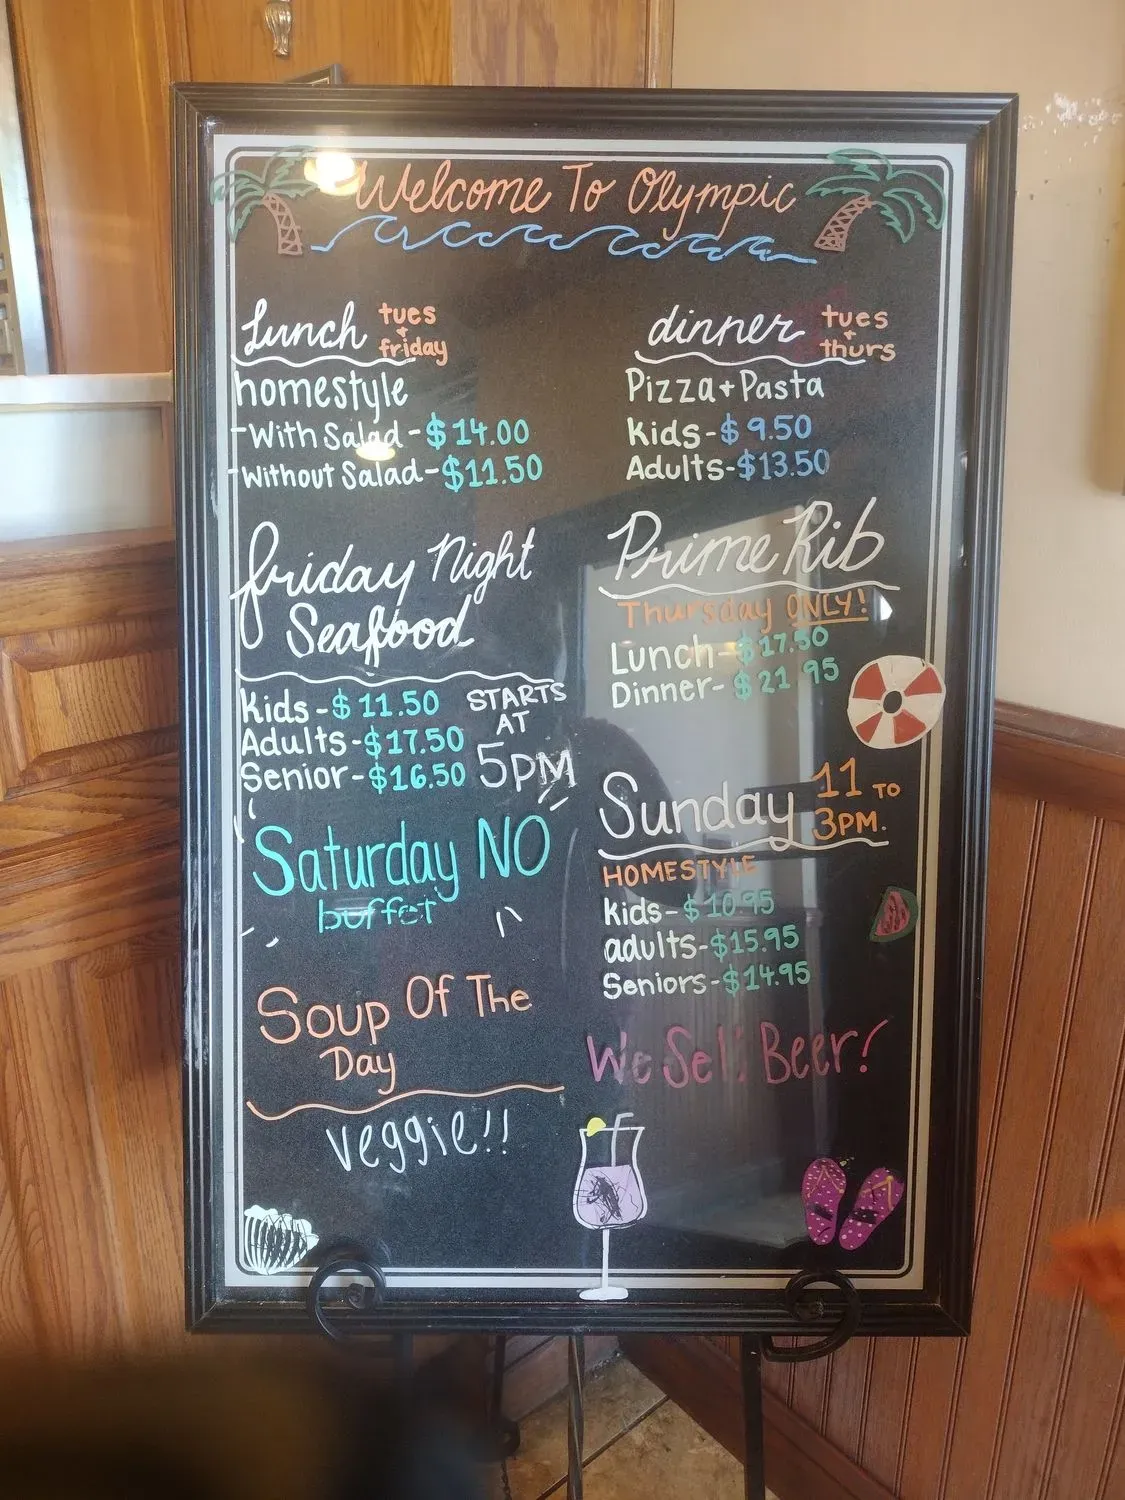 Welcome To Olympic
Lunch tues + friday
homestyle
-With Salad - $14.00
-Without Salad - $11.50
dinner tues + thurs
Pizza + Pasta
Kids - $9.50
Adults - $13.50
Friday Night
Seafood
Kids - $11.50
Adults - $17.50
Senior - $16.50
STARTS
AT
5PM
Prime Rib
Thursday ONLY!
Lunch - $17.50
Dinner - $21.95
Saturday NO
buffet
Sunday 11 TO 3PM.
HOMESTYLE
kids - $10.95
adults - $15.95
Seniors - $14.95
Soup Of The
Day
veggie!!
We Sell Beer!